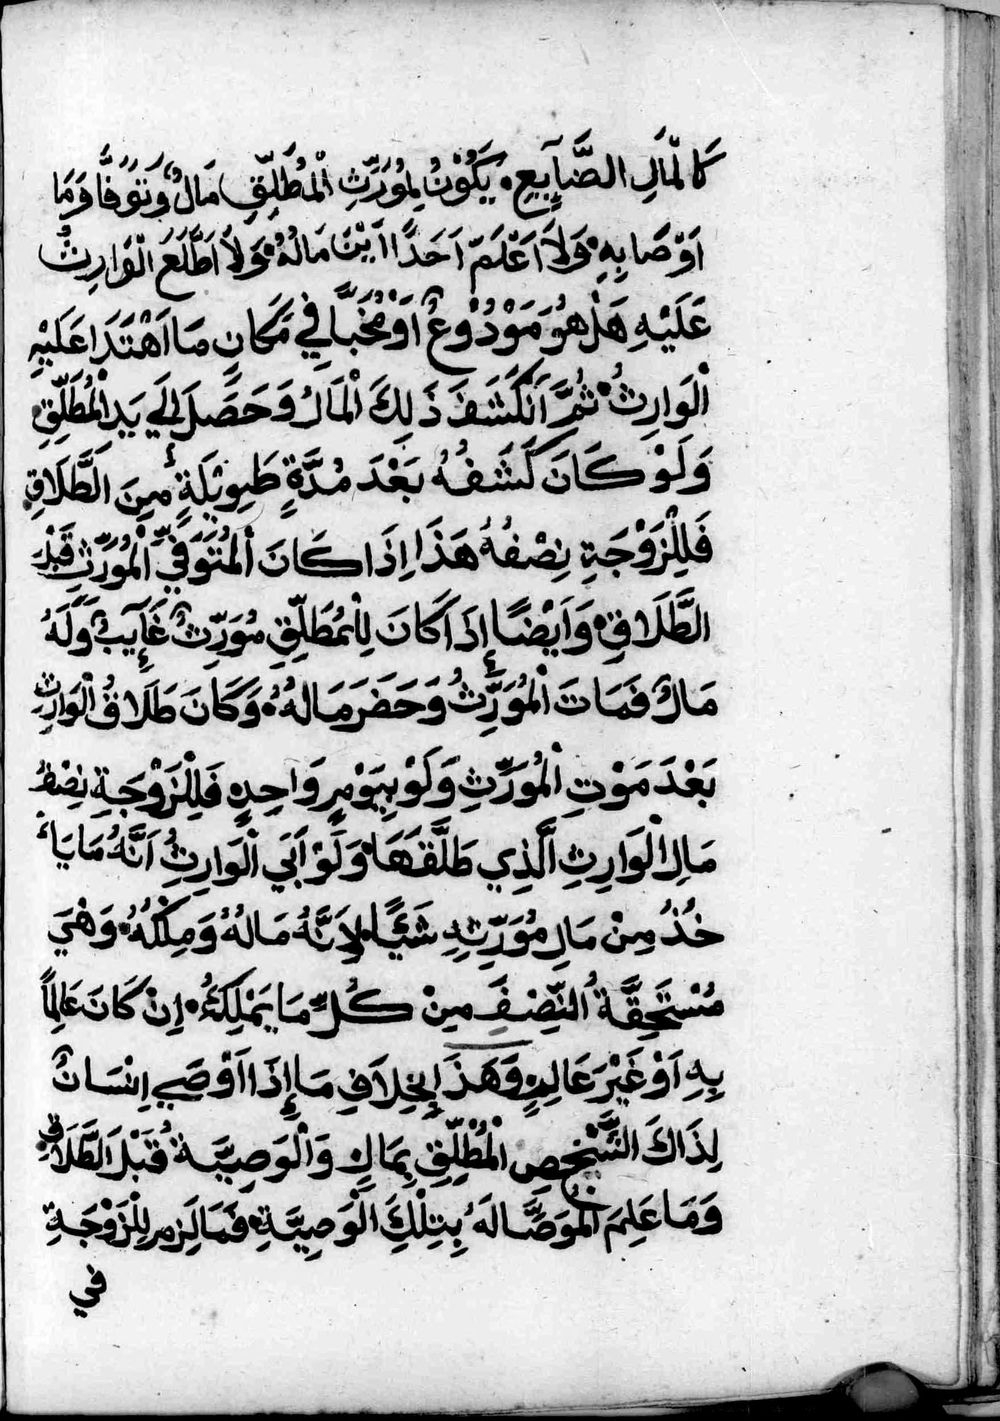 كَالْمَالِ الضَّآيِعِ. يَكُوْنُ لِمُوَرِّثِ الْمُطَلِّقِ مَالٌ وَتَوَفَّا وَمَا
اَوْصَا بِهِ. وَلَا اَعْلَمَ اَحَدًا اَيْنَ مَالُهُ. وَلَا اَطَّلَعَ الْوَارِثُ
عَلَيْهِ هَلْ هُوَ مَوْدُوْعٌ اَوْ مُخَبَّا فِي مَكَانٍ مَا اَهْتَدَا عَلَيْهِ
الْوَارِثُ. ثُمَّ اَنْكَشَفَ ذَلِكَ الْمَالُ وَحَصَلَ اِلَي يَدِ الْمُطَلِّقِ.
وَلَوْ كَانَ كَشْفُهُ بَعْدَ مُدَّةٍ طَوِيْلَةٍ مِنَ الطَّلَاقِ.
فَلِلْزَوْجَةِ نِصْفُهُ هَذَا اِذَا كَانَ الْمُتَوَفِّيِ الْمُوَرِّثِ قَبْلَ
الطَّلَاقِ. وَاَيْضًا إِذَا كَانَ لِلْمُطَلِّقِ مُوَرِّثٌ غَآيِبٌ وَلَهُ
مَالٌ فَمَاتَ الْمُوَرِّثُ وَحَضَرَ مَالُهُ. وَكَانَ طَلَاقُ الْوَارِثِ
بَعْدَ مَوْتِ الْمُوَرِّثِ وَلَوْ بِيَوْمٍ وَاحِدٍ فَلِلْزَوْجَةِ نِصْفُ
مَالِ الْوَارِثِ الَّذِي طَلَّقَهَا. وَلَوْ اَبَي الْوَارِثُ اَنَّهُ مَا يَاْ
خُذُ مِنْ مَالِ مُوَرِّثِهِ شَيْئًا. لِاَنَّهُ مَالُهُ وَمِلْكُهُ. وَهْيَ
مُسْتَحِقَّةُ النِّصْفِ مِنْ كُلِّ مَا يَمْلِكُهُ. اِنْ كَانَ عَالِمًا
بِهِ اَوْ غَيْرَ عَالِمٍ. وَهَذَا بِخِلَافِ مَا إِذَا اَوْصَي اِنْسَانٌ
لِذَاكَ الشَّخْصِ الْمُطَلِّقِ بِمَالٍ وَالْوَصِيَّةُ قَبْلَ الطَّلَاقِ.
وَمَا عَلِمَ الْمُوَصَّا لَهُ بِتِلْكَ الْوَصِيَّةِ. فَمَا لَزِمَ لِلْزَوْجَةِ
في